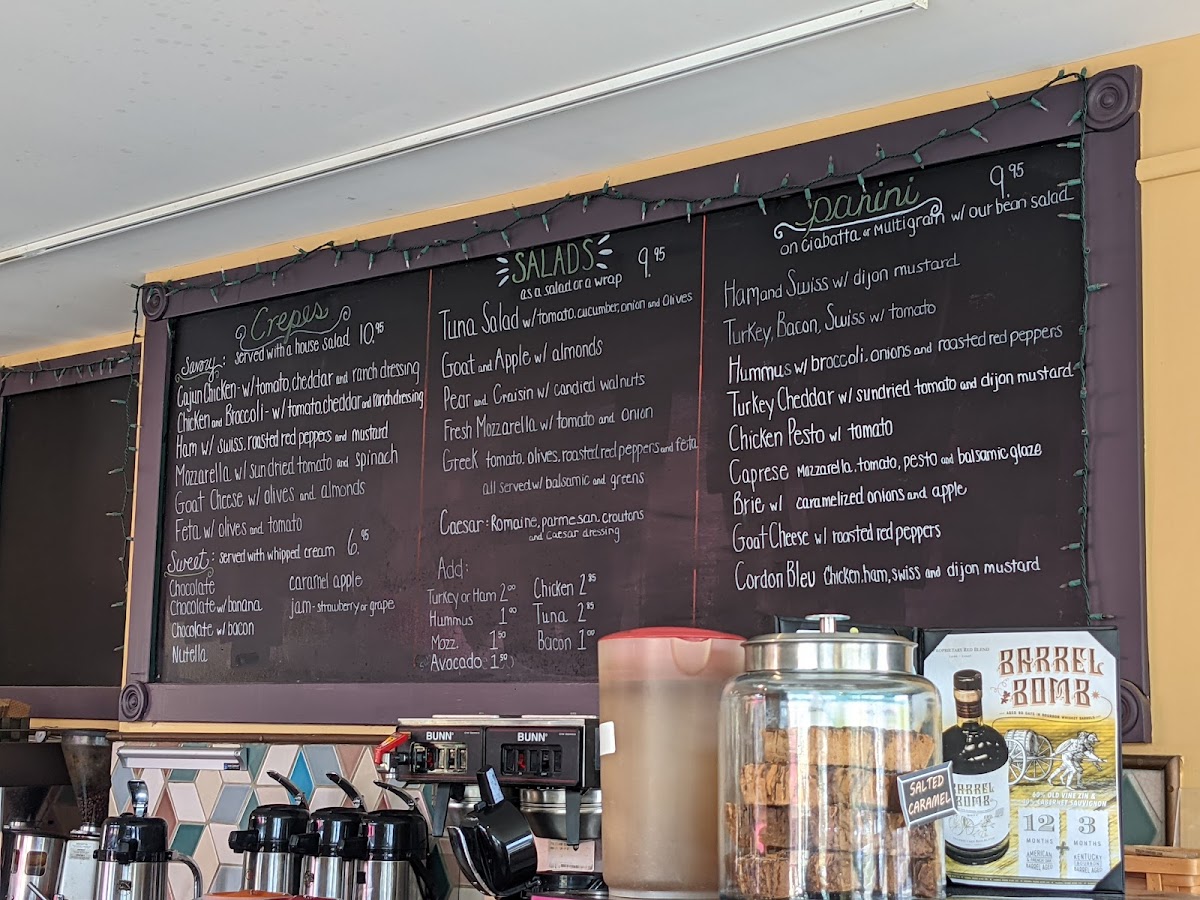 Crepes
Savory: served with a house salad 10.95
Cajun Chicken - w/ tomato, cheddar and ranch dressing
Chicken and Broccoli - w/ tomato, cheddar and Ranch dressing
Ham w/ swiss, roasted red peppers and mustard
Mozzarella w/ sundried tomato and spinach
Goat Cheese w/ olives and almonds
Feta w/ olives and tomato
Sweet: served with whipped cream 6.95
Chocolate
Chocolate w/ banana
Chocolate w/ bacon
Nutella
caramel apple
jam - strawberry or grape
SALADS 9.95
as a salad or a wrap
Tuna Salad w/ tomato, cucumber, onion and Olives
Goat and Apple w/ almonds
Pear and Craisin w/ candied walnuts
Fresh Mozzarella w/ tomato and onion
Greek tomato, olives, roasted red peppers and feta
all served w/ balsamic and greens
Caesar: Romaine, parmesan, croutons
and caesar dressing
Add:
Turkey or Ham 2.00
Hummus 1.00
Mozz. 1.50
Avocado 1.50
Chicken 2.95
Tuna 2.95
Bacon 1.00
panini 9.95
on ciabatta or Multigrain w/ our bean salad
Ham and Swiss w/ dijon mustard
Turkey, Bacon, Swiss w/ tomato
Hummus w/ broccoli, onions and roasted red peppers
Turkey Cheddar w/ sundried tomato and dijon mustard
Chicken Pesto w/ tomato
Caprese Mozzarella, tomato, pesto and balsamic glaze
Brie w/ caramelized onions and apple
Goat Cheese w/ roasted red peppers
Cordon Bleu Chicken, ham, swiss and dijon mustard
BUNN
BUNN
SALTED
CARAMEL
BARREL
BOMB
BARREL
BOMB
60% OLD VINE ZIN &
CABERNET SAUVIGNON
12
MONTHS
AMERICAN &
BARREL AGED
3
MONTHS
KENTUCKY
BOURBON
BARREL AGED